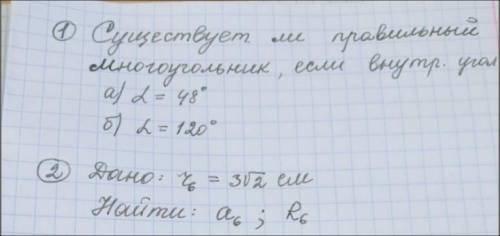 ① Существует ли правильный
многоугольник, если внутр. угол
а) α = 48°
б) α = 120°
② Дано: r₆ = 3√2 см
Найти: a₆ ; R₆